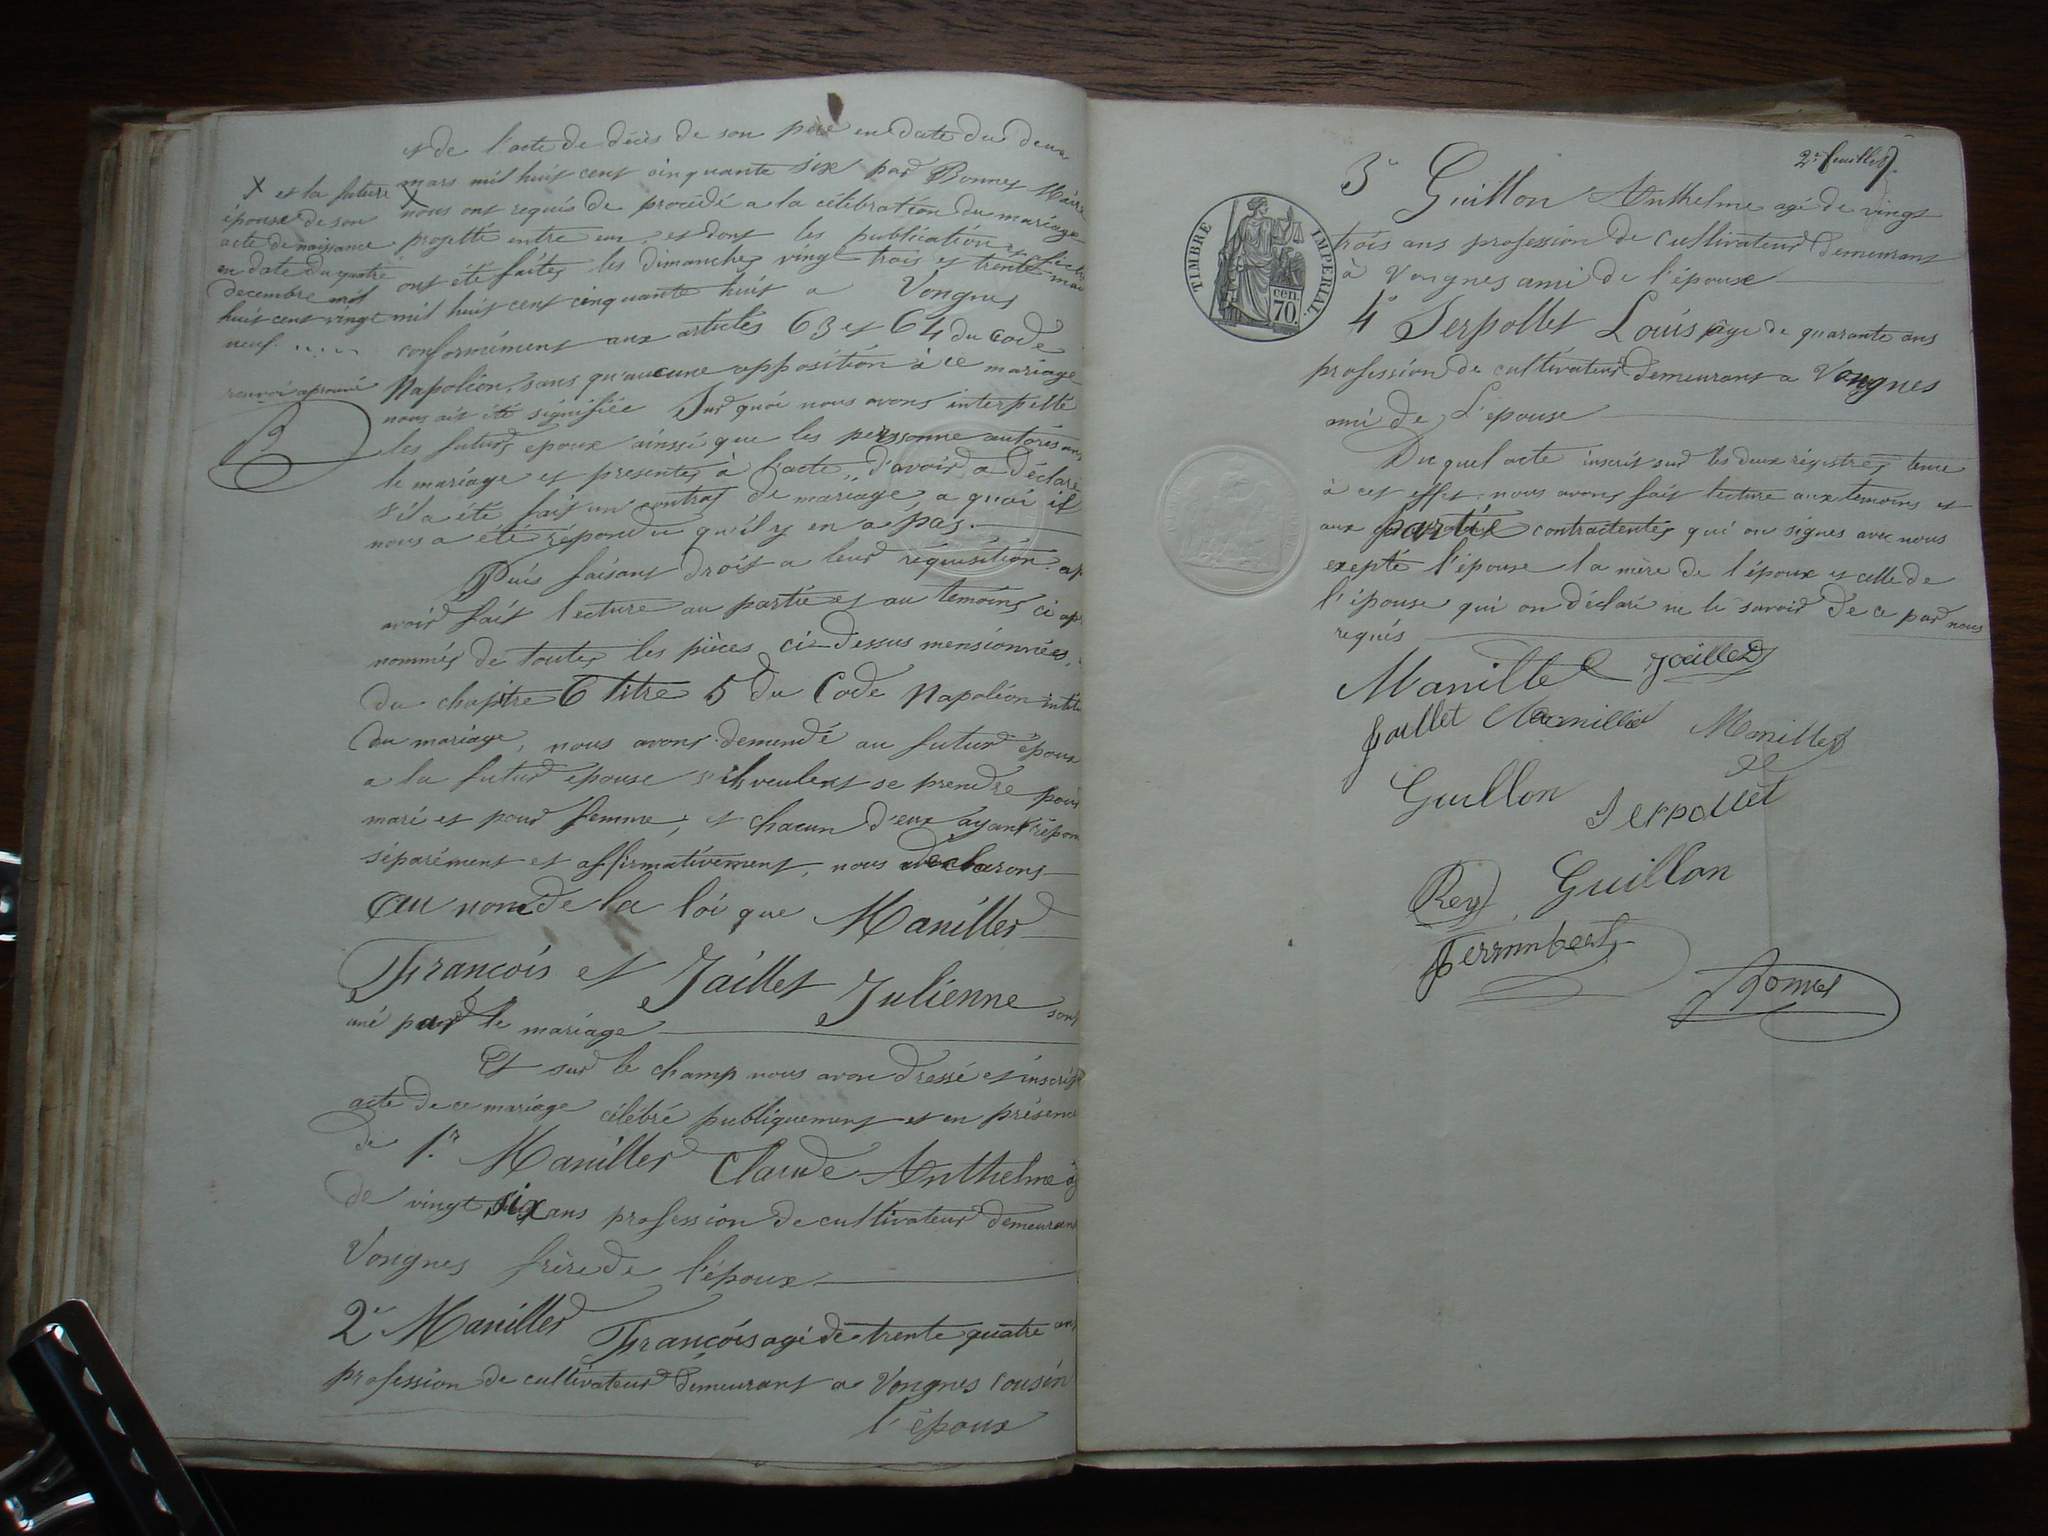 et de l'acte de décès de son père en date du deux
mars mil huit cent cinquante six par Bonnet Maire
X et la future
épouse de son
acte de naissance
en date du quatre
decembre mil
huit cent vingt
neuf.
renvoi aprouvé
B
X nous ont requis de procédé a la célébration du mariage
projetté entre eux, et dont les publication
ont été faites les dimanches vingt trois et trente mai
mil huit cent cinquante huit a Vongnes
conformément aux articles 63 et 64 du Code
Napoléon, sans qu'aucune opposition à ce mariage
nous ait été signifiée Sur quoi nous avons interpellé
les futurs epoux ainssi que les perssonne autorisant
le mariage et presentes à l'acte, d'avoir a déclaré
s'il a été fait un contrat de mariage a quoi il
nous a été répondu qu'il y en a pas.
Puis faisant droit a leur réquisition ap
avoir fait lecture au partie et au temoins ci ap
nommés de toutes les pièces ci-dessus mensionnées,
du chapitre 6 titre 5 du Code Napoléon intitu
du mariage, nous avons demendé au futur époux
a la futur epouse s'ils veulent se prendre pour
mari et pour femme, et chacun d'eux ayant répon
séparément et affirmativement, nous declarons
au nom de la loi que Manillier
François et Jaillet Julienne sont
uni par le mariage
Et sur le champ nous avon dressé et inscript
acte de ce mariage célébré publiquement et en présence
de 1.r Manillier Claude Anthelme ag
de vingt six ans profession de cultivateur demeurant
Vongnes frère de l'époux
2e Manillier François agé de trente quatre ans
profession de cultivateur demeurant a Vongnes cousin
l'époux
2e feuillet
3e Guillon Anthelme agé de vingt
trois ans profession de cultivateur demeurant
à Vongnes ami de l'épouse
4e Serpollet Louis âge de quarante ans
profession de cultivateur demeurant a Vongnes
ami de L'épouse
TIMBRE IMPERIAL.
cen.
70.
Du quel acte inscrit sur les deux régistres tenu
à cet effet, nous avons fait lecture aux temoins et
aux partie contractentes qui on signes avec nous
exepté l'épouse la mère de l'époux et celle de
l'épouse qui on déclaré ne le savoir de ce par nous
requis
Manillié Jaillet
Jaillet Manillier Manillier
Guillon Serpollet
Rey Guillon
Ferrimbert
Bonnet